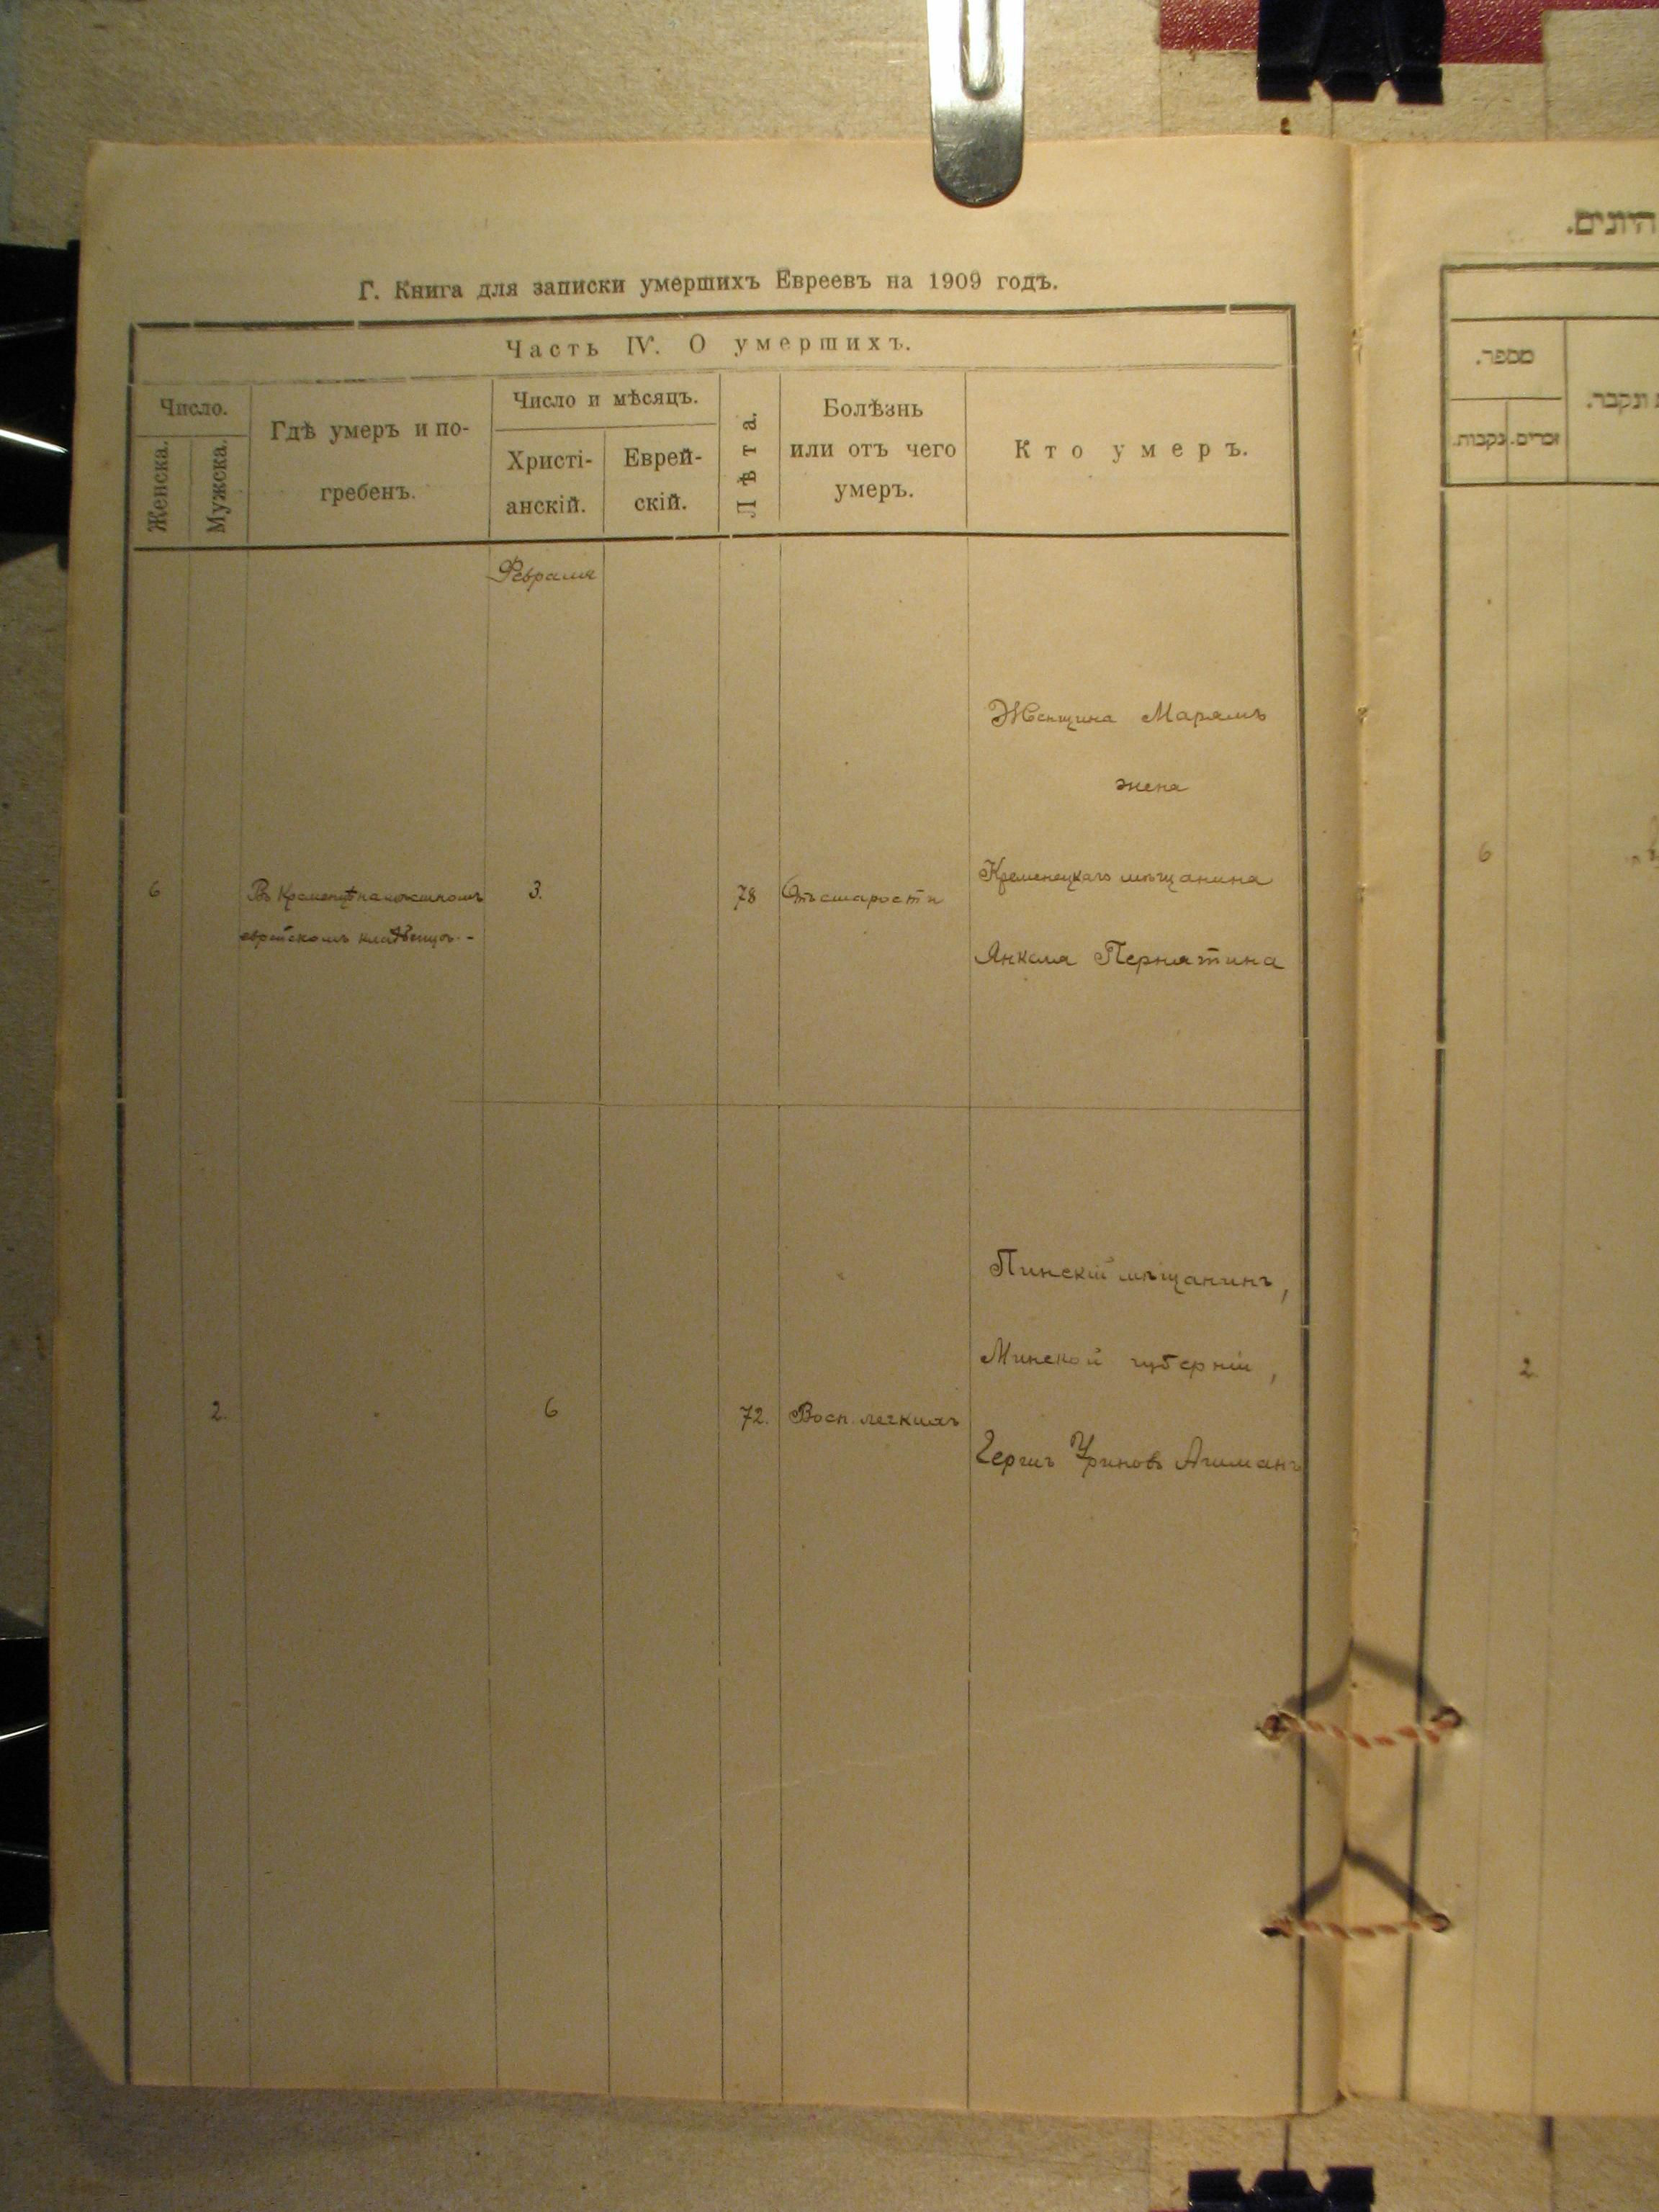 Г. Книга для записки умершихъ Евреевъ на 1909 годъ.
Часть IV. О умершихъ.
Число.
Женска.
Мужска.
Гдѣ умеръ и по-
гребенъ.
Число и мѣсяцъ.
Христі-
анскій.
Еврей-
скій.
Лѣта.
Болѣзнь
или отъ чего
умеръ.
Кто умеръ.
Февраля
6
Въ Кременцѣ на мѣстномъ
еврейскомъ кладбищѣ. -
3.
78
Отъ старости
Женщина Марямъ
жена
Кременецкаго мѣщанина
Янкеля Пернатина
2.
6
72.
Восп. легкихъ
Пинскій мѣщанинъ,
Минской губерніи,
Гершъ Уриновъ
היונים.
מספר.
נקבות.
זכרים.
ונקבר.
6
2